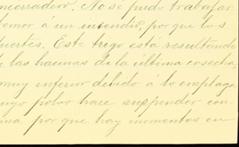 encerradero. No se pudo trabajar
temor á un incendio, por que los
fuertes. Este trigo está resultando
e las hacinas de la ultima cosecha,
muy inferior debido á lo emplaga
cuyo polvo hace suspender con
ma, por que hay momentos en